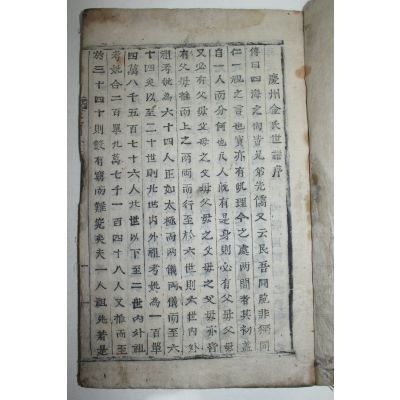 慶州金氏世譜序
傳曰四海之內皆兄弟先儒又云民吾同胞非獨同
仁一視之言也實亦有此理今之處兩間者其初蓋
自一人而分何也凡人旣有是身則必有父母父母
又必有父母父母之父母又有父母父母之父母亦皆
有父母推而上之兩兩而行至於六世則六世內外
祖考妣爲六十四人正如太極而兩儀兩儀而至六
十四矣以至二十世則此世內外祖考妣爲一百單
四萬八千五百七十六人此世以下至二世內外祖
考妣合二百單九萬七千一百四十八人又推而至
於三十四十則設有窮而難究矣夫一人祖先若是